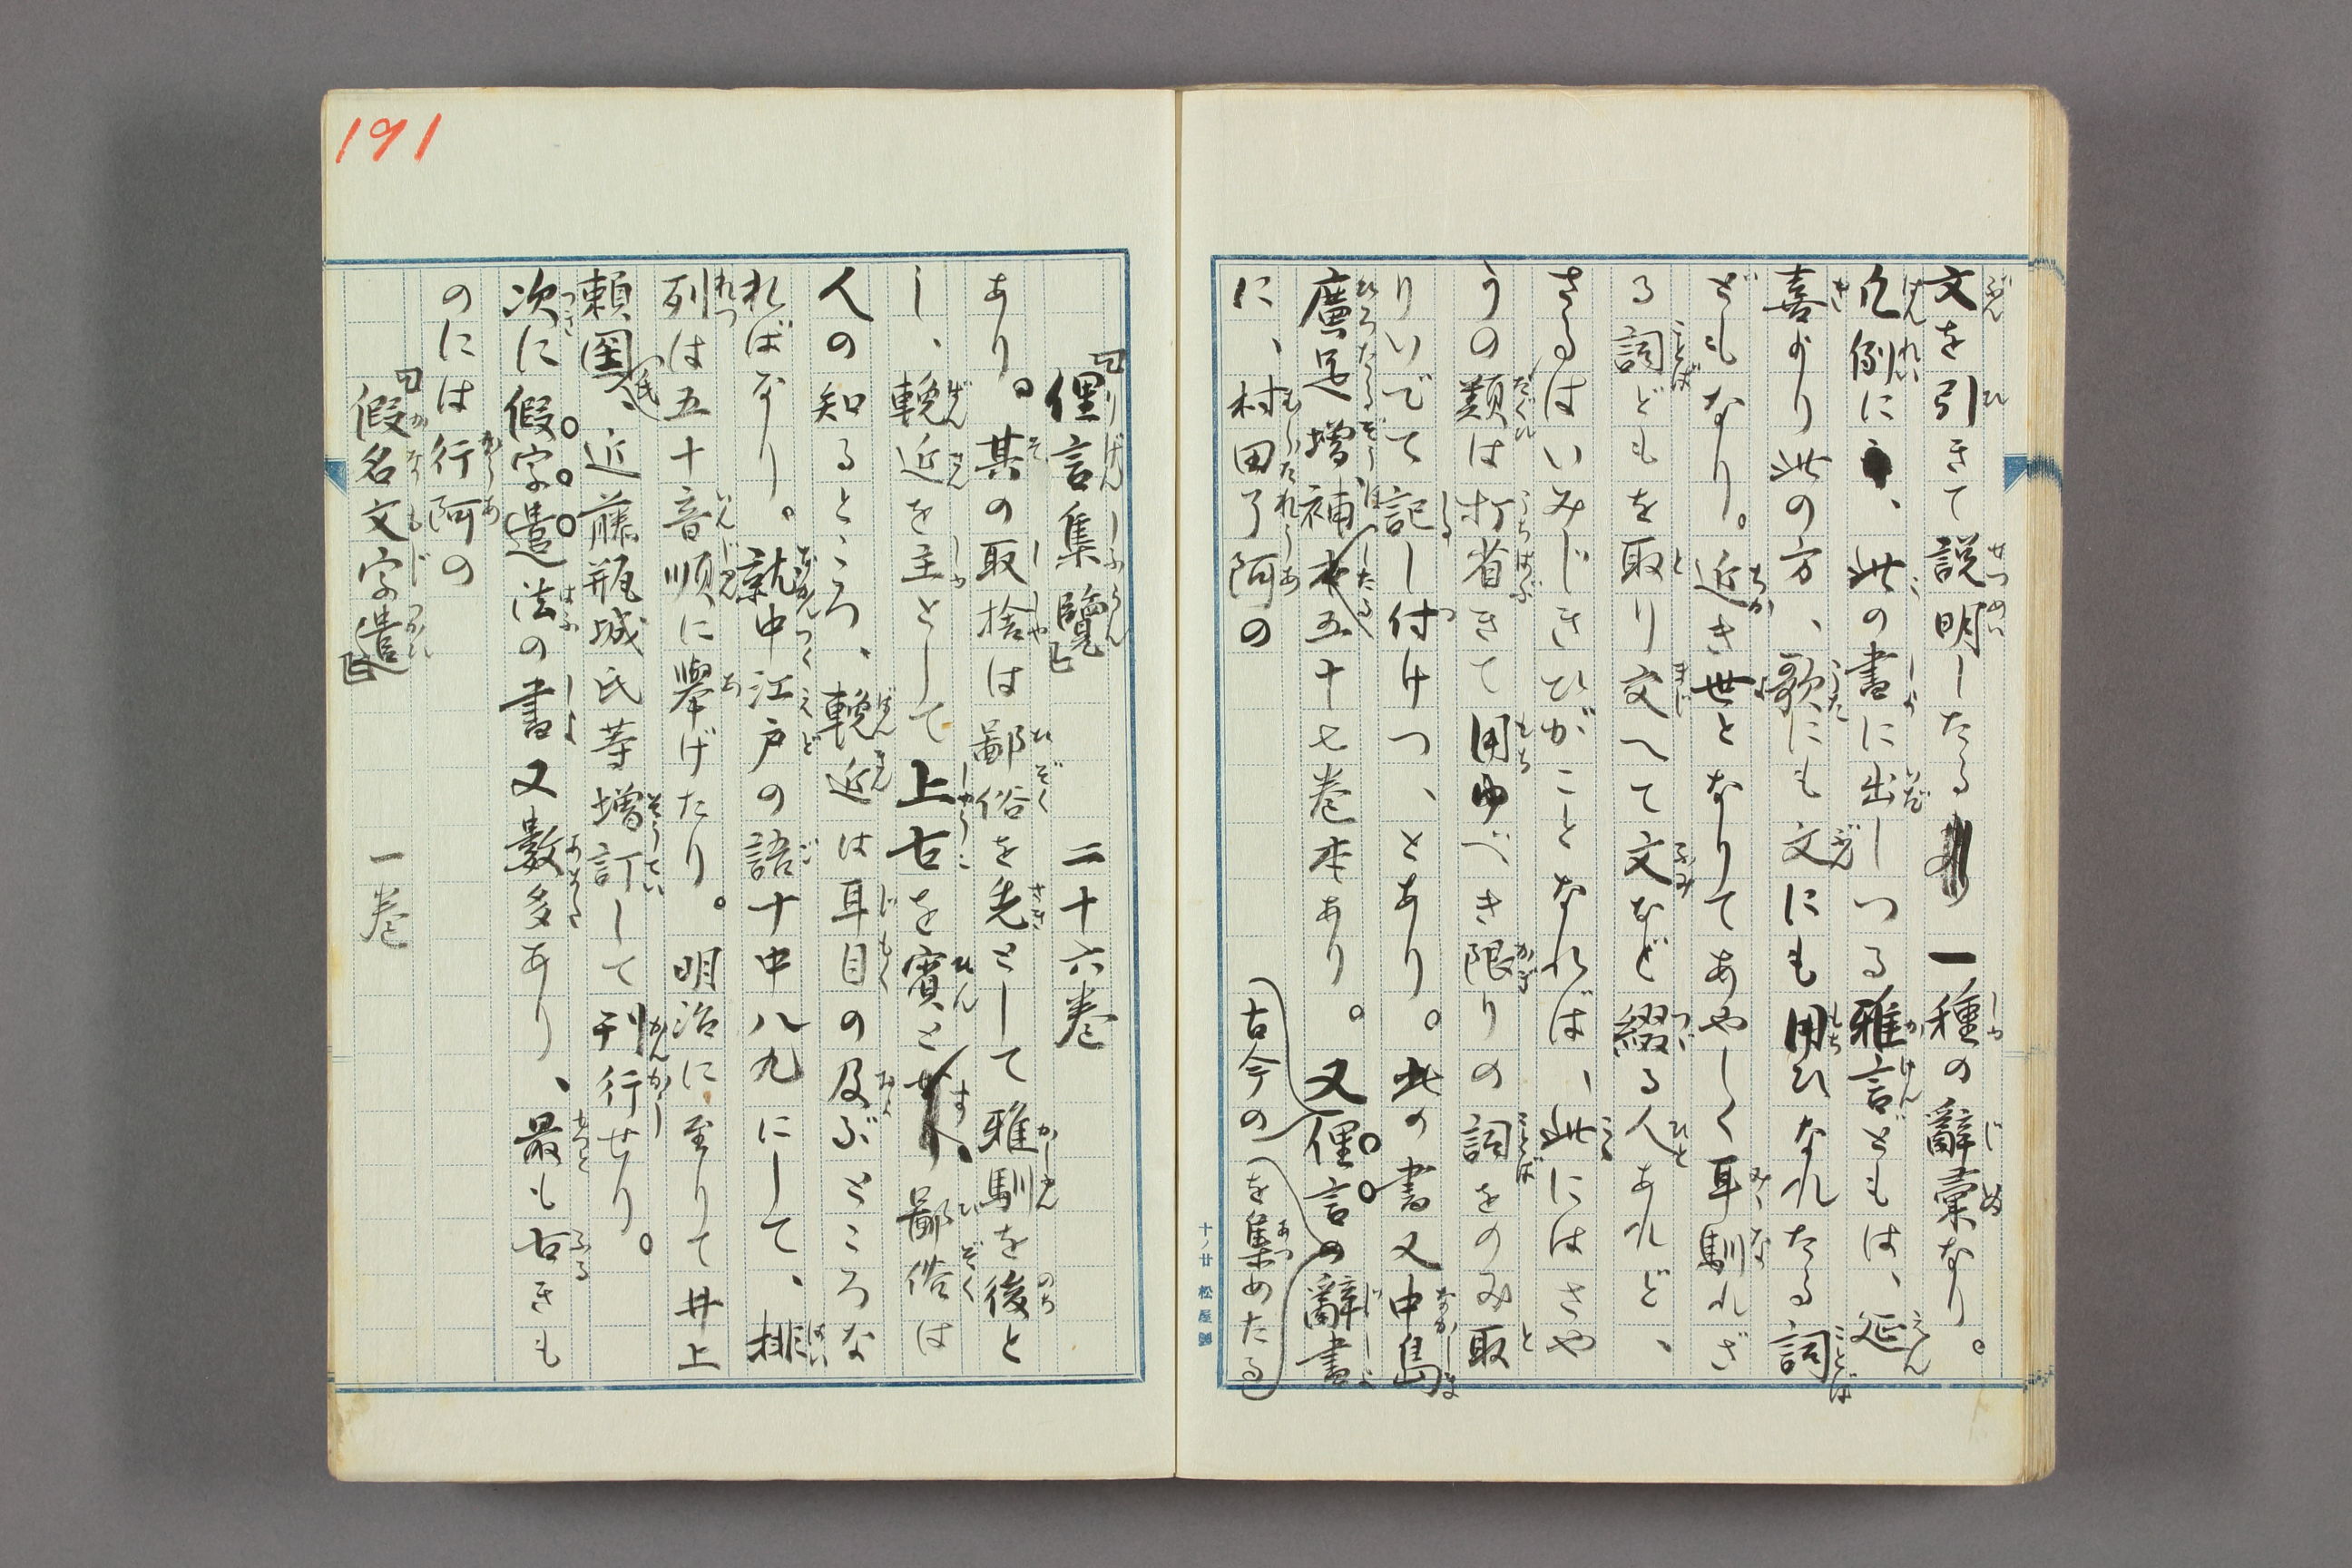 文を引きて説明したる一種の辭彙なり。
凡例に、此の書に出しつる雅言どもは、延
喜より此の方、歌にも文にも用ひなれたる詞
どもなり。近き世となりてあやしく耳馴れざ
る詞どもを取り交へて文など綴る人あれど、
さるはいみじきひがことなれば、此にはさや
うの類は打省きて用ゆべき限りの詞をのみ取
りいでて記し付けつ、とあり。此の書又中島
廣足増補したる五十七卷本あり。又俚言の辭書
に、村田了阿の古今のを集めたる
十ノ廿 松屋製
191
俚言集覽 二十六卷
あり。其の取捨は鄙俗を先として雅馴を後と
し、輓近を主として上古を賓とす、鄙俗は
人の知るところ、輓近は耳目の及ぶところな
ればなり。就中江戸の語十中八九にして、排
列は五十音順に擧げたり。明治に至りて井上
賴囶氏、近藤瓶城氏等増訂して刊行せり。
次に假字遣法の書又數多あり、最も古きも
のには行阿の
假名文字遣 一卷